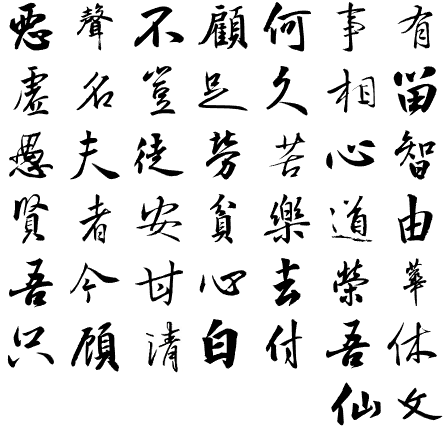 惡聲不顧何事有
虛名豈足久相留
愚夫徒勞苦心智
賢者安貧樂道由
吾今甘心去榮華
只願清白付吾休
仙文